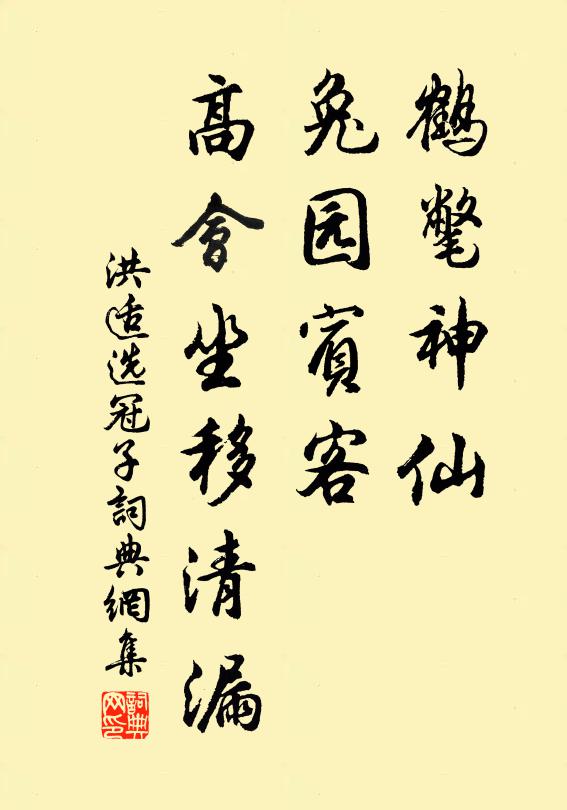 鹤氅神仙
兔园宾客
高会坐移清漏
洪适选冠子詞典網集
詞典网印